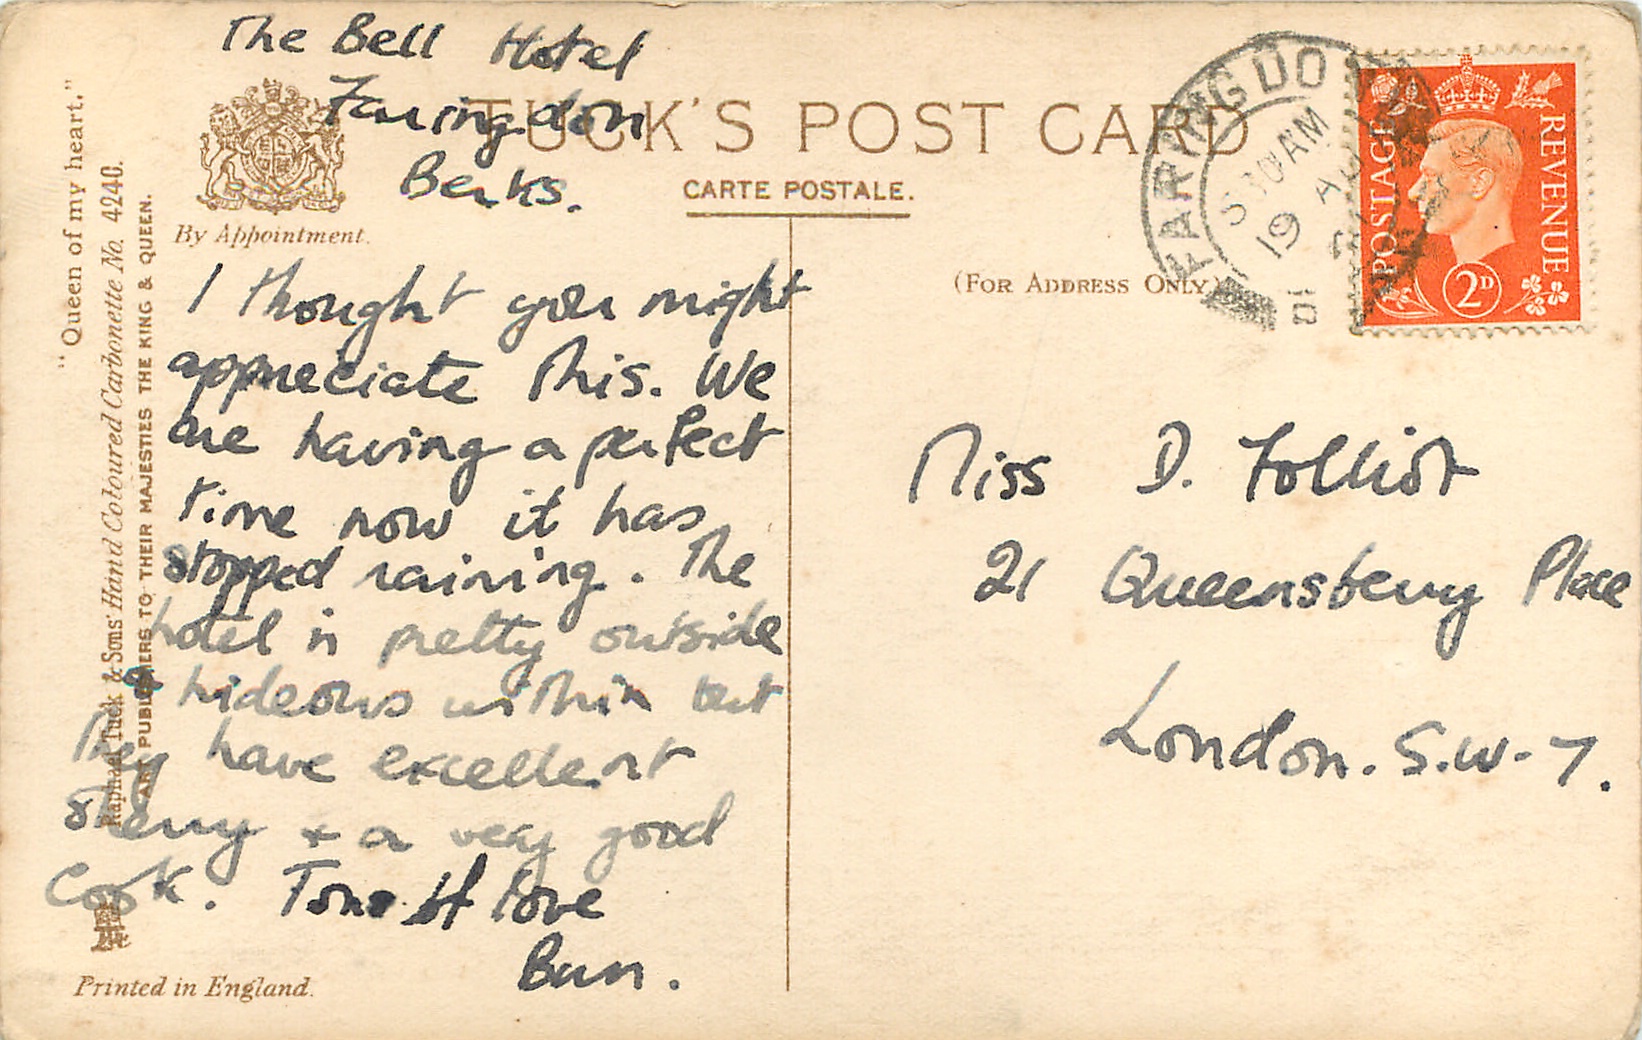 The Bell Hotel
Faringdon
Berks.
TUCK'S POST CARD
CARTE POSTALE.
By Appointment.
(For Address Only)
"Queen of my heart."
Raphael Tuck & Sons' Hand Coloured Carbonette No. 4240.
ART PUBLISHERS TO THEIR MAJESTIES THE KING & QUEEN.
I thought you might
appreciate this. We
are having a perfect
time now it has
stopped raining. The
hotel is pretty outside
& hideous within but
they have excellent
sherry + a very good
Cook. Tons of love
Bun.
Printed in England.
FARINGDO
AM
19 AU
POSTAGE
REVENUE
2D
Miss D. Folliot
21 Queensberry Place
London. S.W-7.